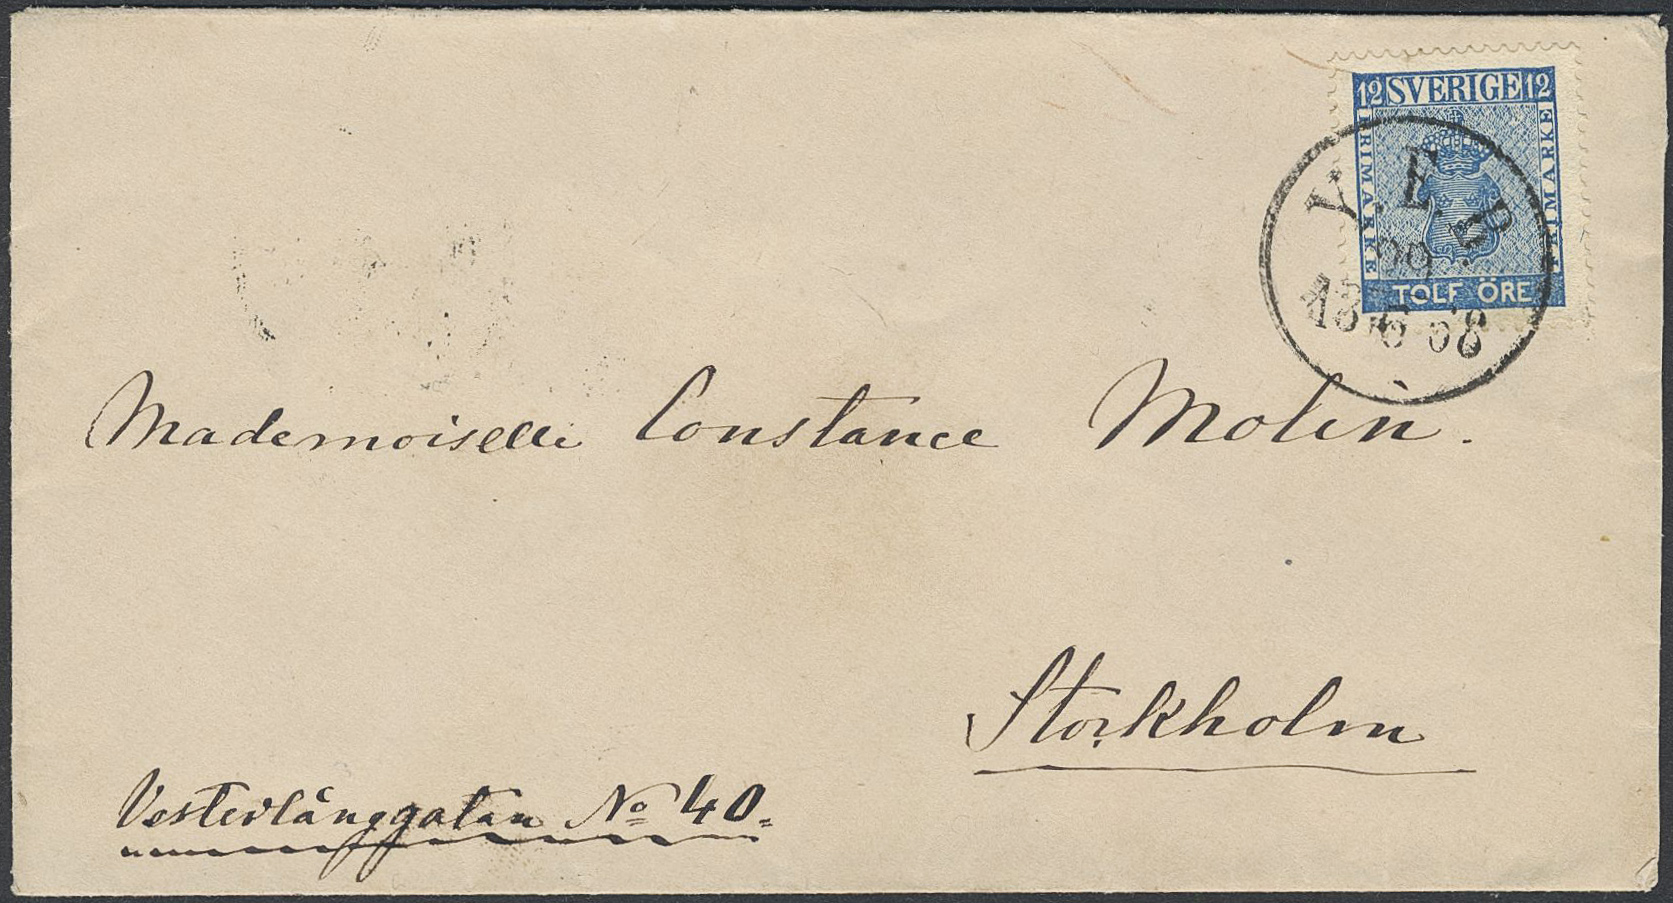 12 SVERIGE 12
FRIMARKE
FRIMARKE
TOLF ÖRE
29
6
1868
Mademoiselle Constance Molin.
Stockholm
Vesterlånggatan No 40.